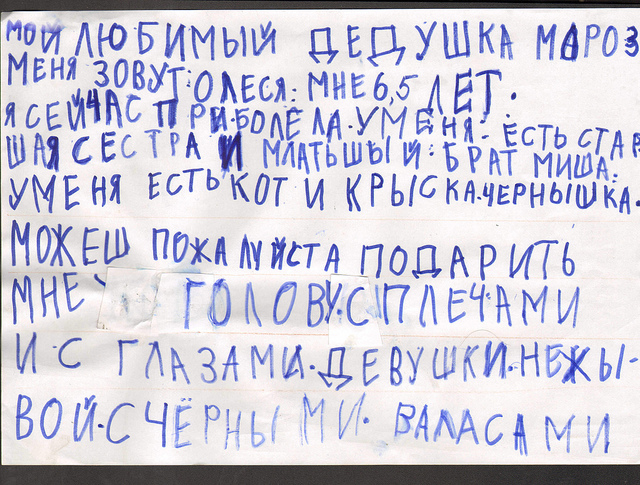 МОЙ ЛЮБИМЫЙ ДЕДУШКА МАРОЗ
МЕНЯ ЗОВУТ: ОЛЕСЯ: МНЕ 6,5 ЛЕТ.
Я СЕЙЧАС ПРИБОЛЕЛА. У МЕНЯ. ЕСТЬ СТАР
ШАЯ СЕСТРА И МЛАТЬШЫЙ: БРАТ МИША:
У МЕНЯ ЕСТЬ КОТ И КРЫСКА. ЧЕРНЫШКА.
МОЖЕШ ПОЖАЛУЙСТА ПОДАРИТЬ
МНЕ ГОЛОВУ. С ПЛЕЧАМИ
И С ГЛАЗАМИ. ДЕВУШКИ. НЕЖЫ-
ВОЙ. С ЧЁРНЫМИ. ВАЛАСАМИ